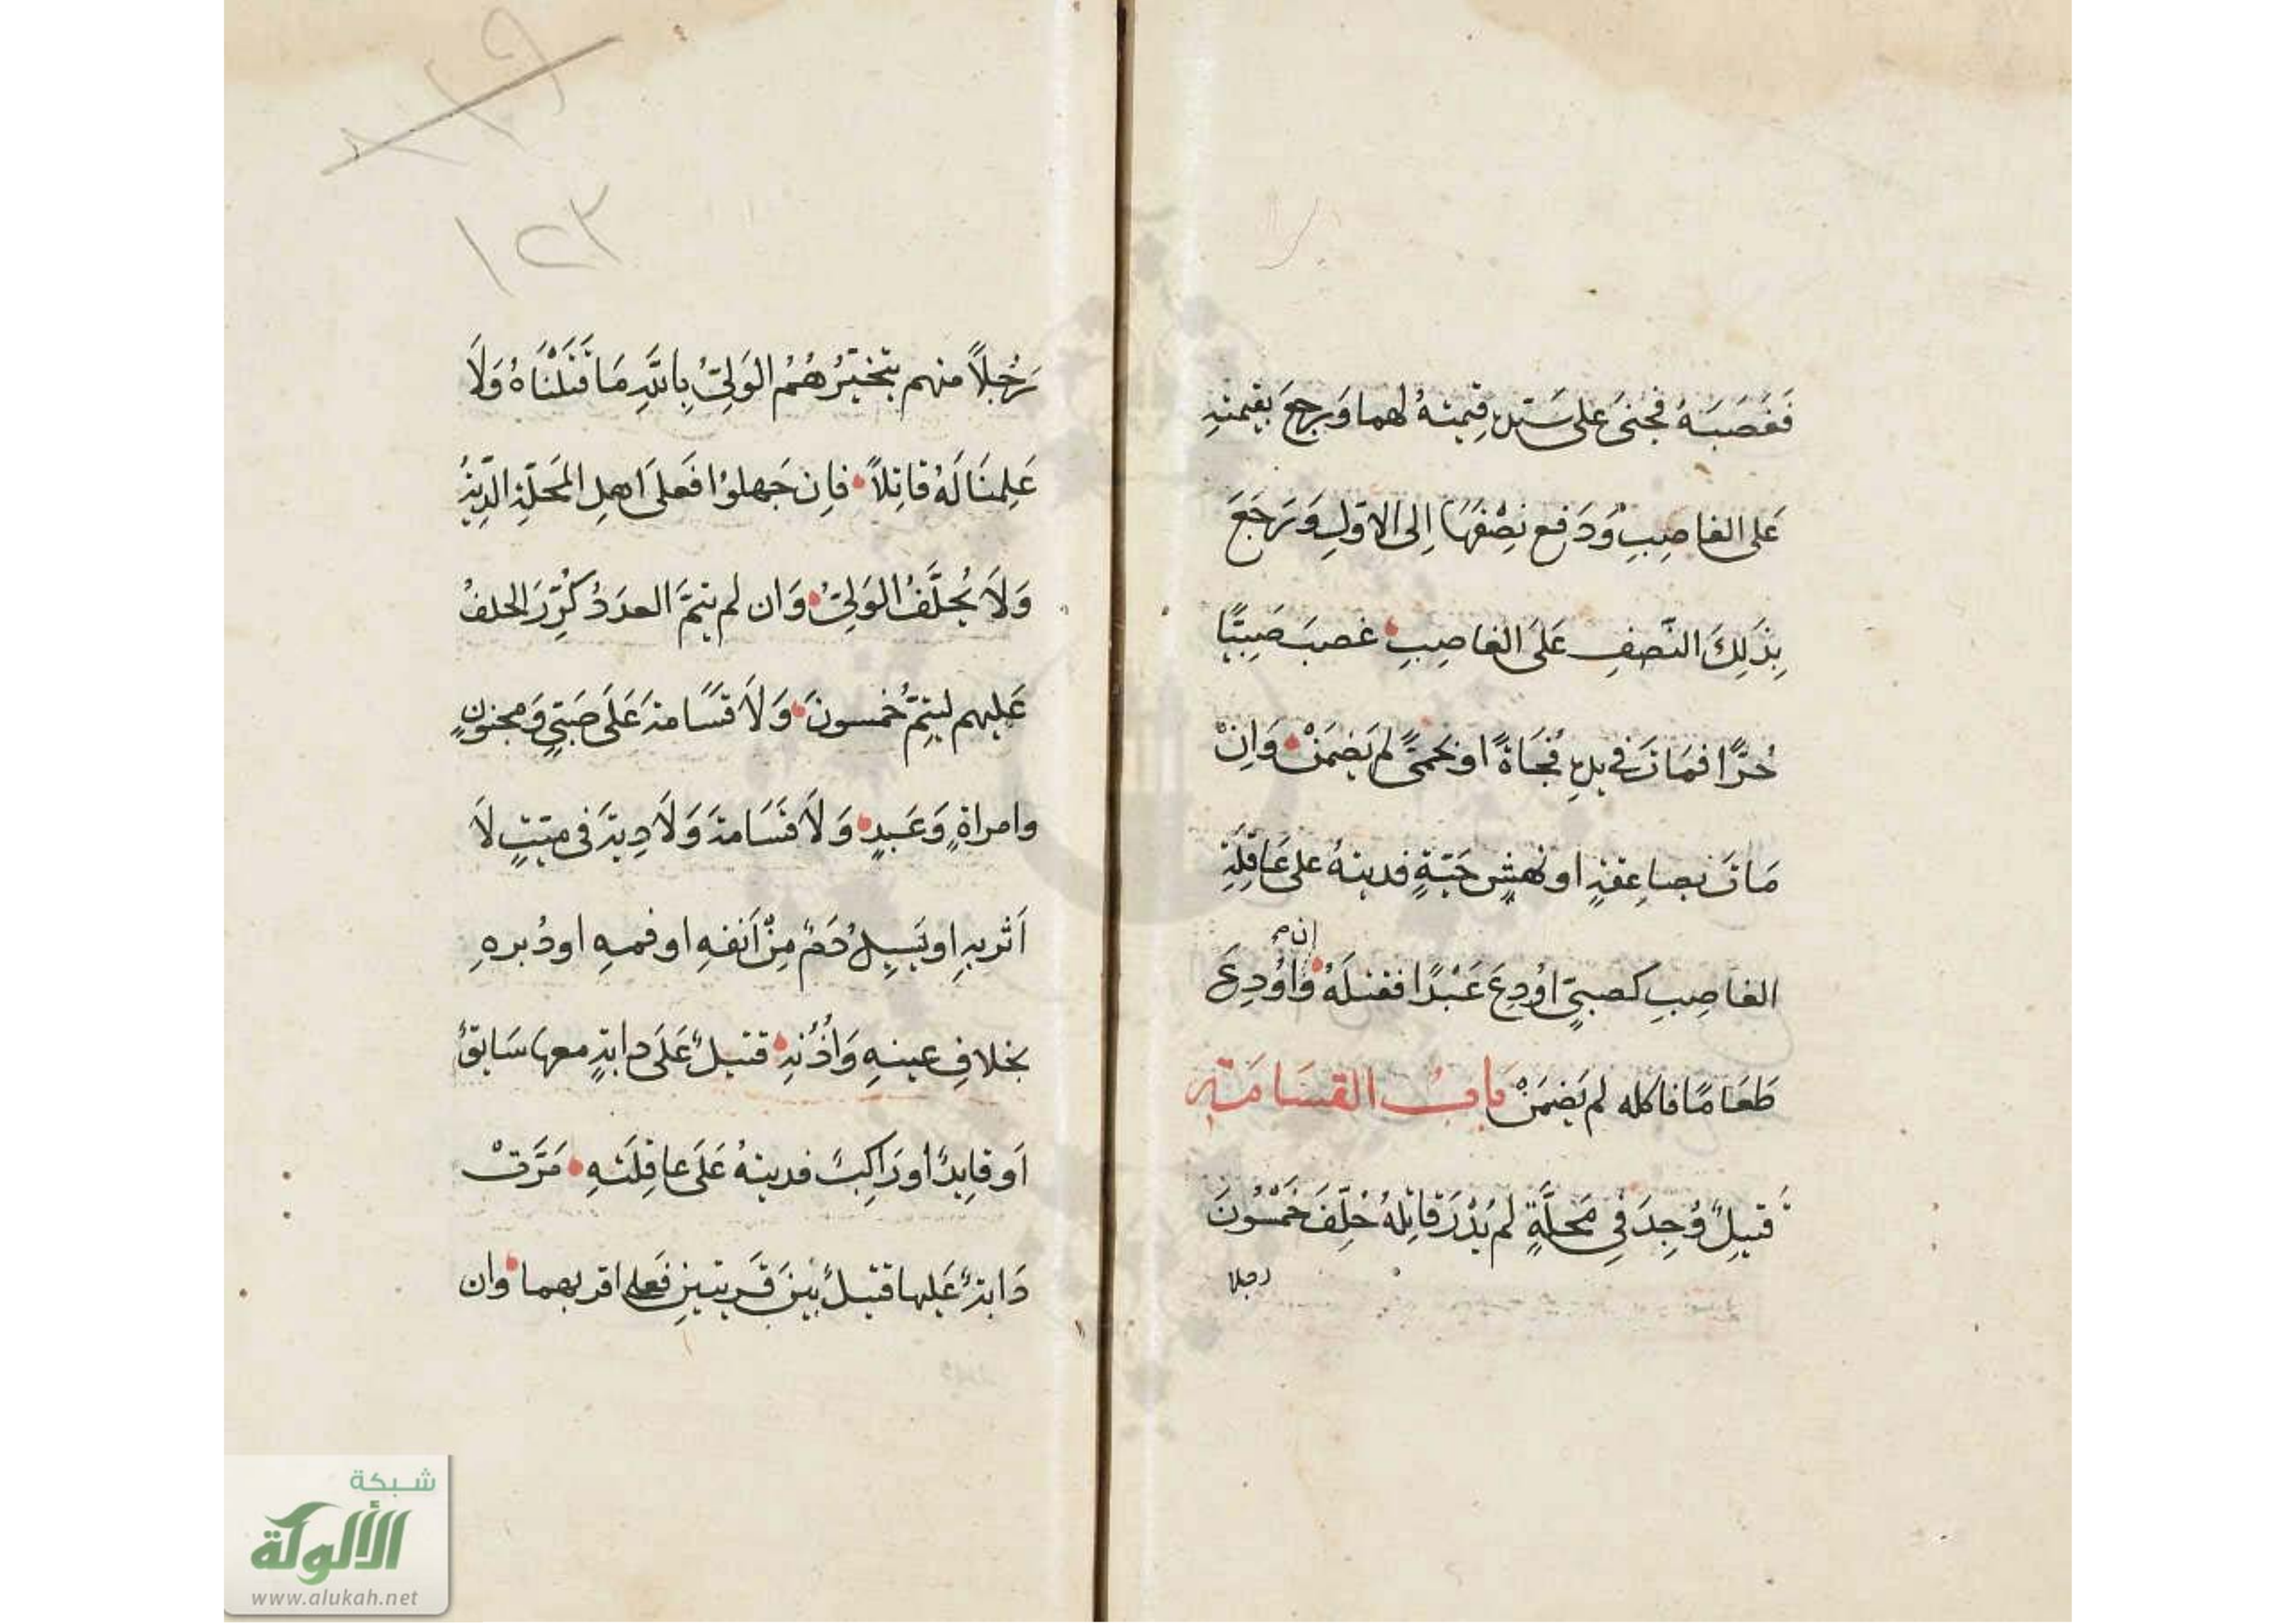 فَغَصَبَهُ فجنىَ على سَيّدِه قِيمتهُ لهما وَيرجعَ بقيمتهِ
عَلى الغاصِبِ وَدَفع نِصْفهَا إلى الاوّلِ وَرَجَعَ
بِذَلِكَ النّصفِ عَلَى الغاصِبِ غصبَ صَبِيًّا
حُرًّا فمَاتَ في يدِهِ فُجَاةً او بحمىً لم يَضمَنْ وَاِنْ
مَاتَ بصاعِقةٍ او نهشِ حَيّةٍ فديتهُ على عَاقِلَةِ
الغاصِبِ كصبىٍّ اوُدِعَ عَبْدًا فقتلَهُ وَاوُدِعَ
إن
طَعَامًا فاكله لم يَضمَنْ بَابُ القسَامَةِ
قتيلٌ وُجِدَ فِي مَحلَّةٍ لم يُدْرَ قاتِلهُ حُلّفَ خَمْسُونَ
رجلا
١٢٣
رَجُلاً منهم يتخيّرُهُمُ الوَلِيُّ بِاللّهِ مَا قَتَلْنَاهُ وَلَا
عَلِمنَا لَهُ قاتِلاً فاِن حَلفُوا فَعلىَ اهلِ المَحلّةِ الدِّيةُ
وَلَا يُحلَّفُ الوَلِيُّ وَان لم يتمَّ العدَدُ كُرِّرَ الحلفُ
عَليهم ليتِمَّ خمسونَ وَلَا قسَامةَ عَلَى صَبىٍّ وَمجنونٍ
وامراةٍ وَعَبدٍ وَلَا قَسَامةَ وَلَا دِيةَ فى ميّتٍ لَا
اَثر بهِ او يَسِيلُ دَمٌ مِنْ اَنفهِ او فمهِ او دُبرهِ
بخلافِ عينهِ وَاُذُنهِ قتيلٌ عَلَى دابةٍ معها سَايقٌ
اَو قايِدٌ او رَاكِبٌ فديتهُ عَلَى عاقِلَتهِ مَرَّتْ
دَابةٌ عَليها قتيلٌ بَينَ قَريتينِ فَعلى اقربهما وان
شبكة
الألوكة
www.alukah.net